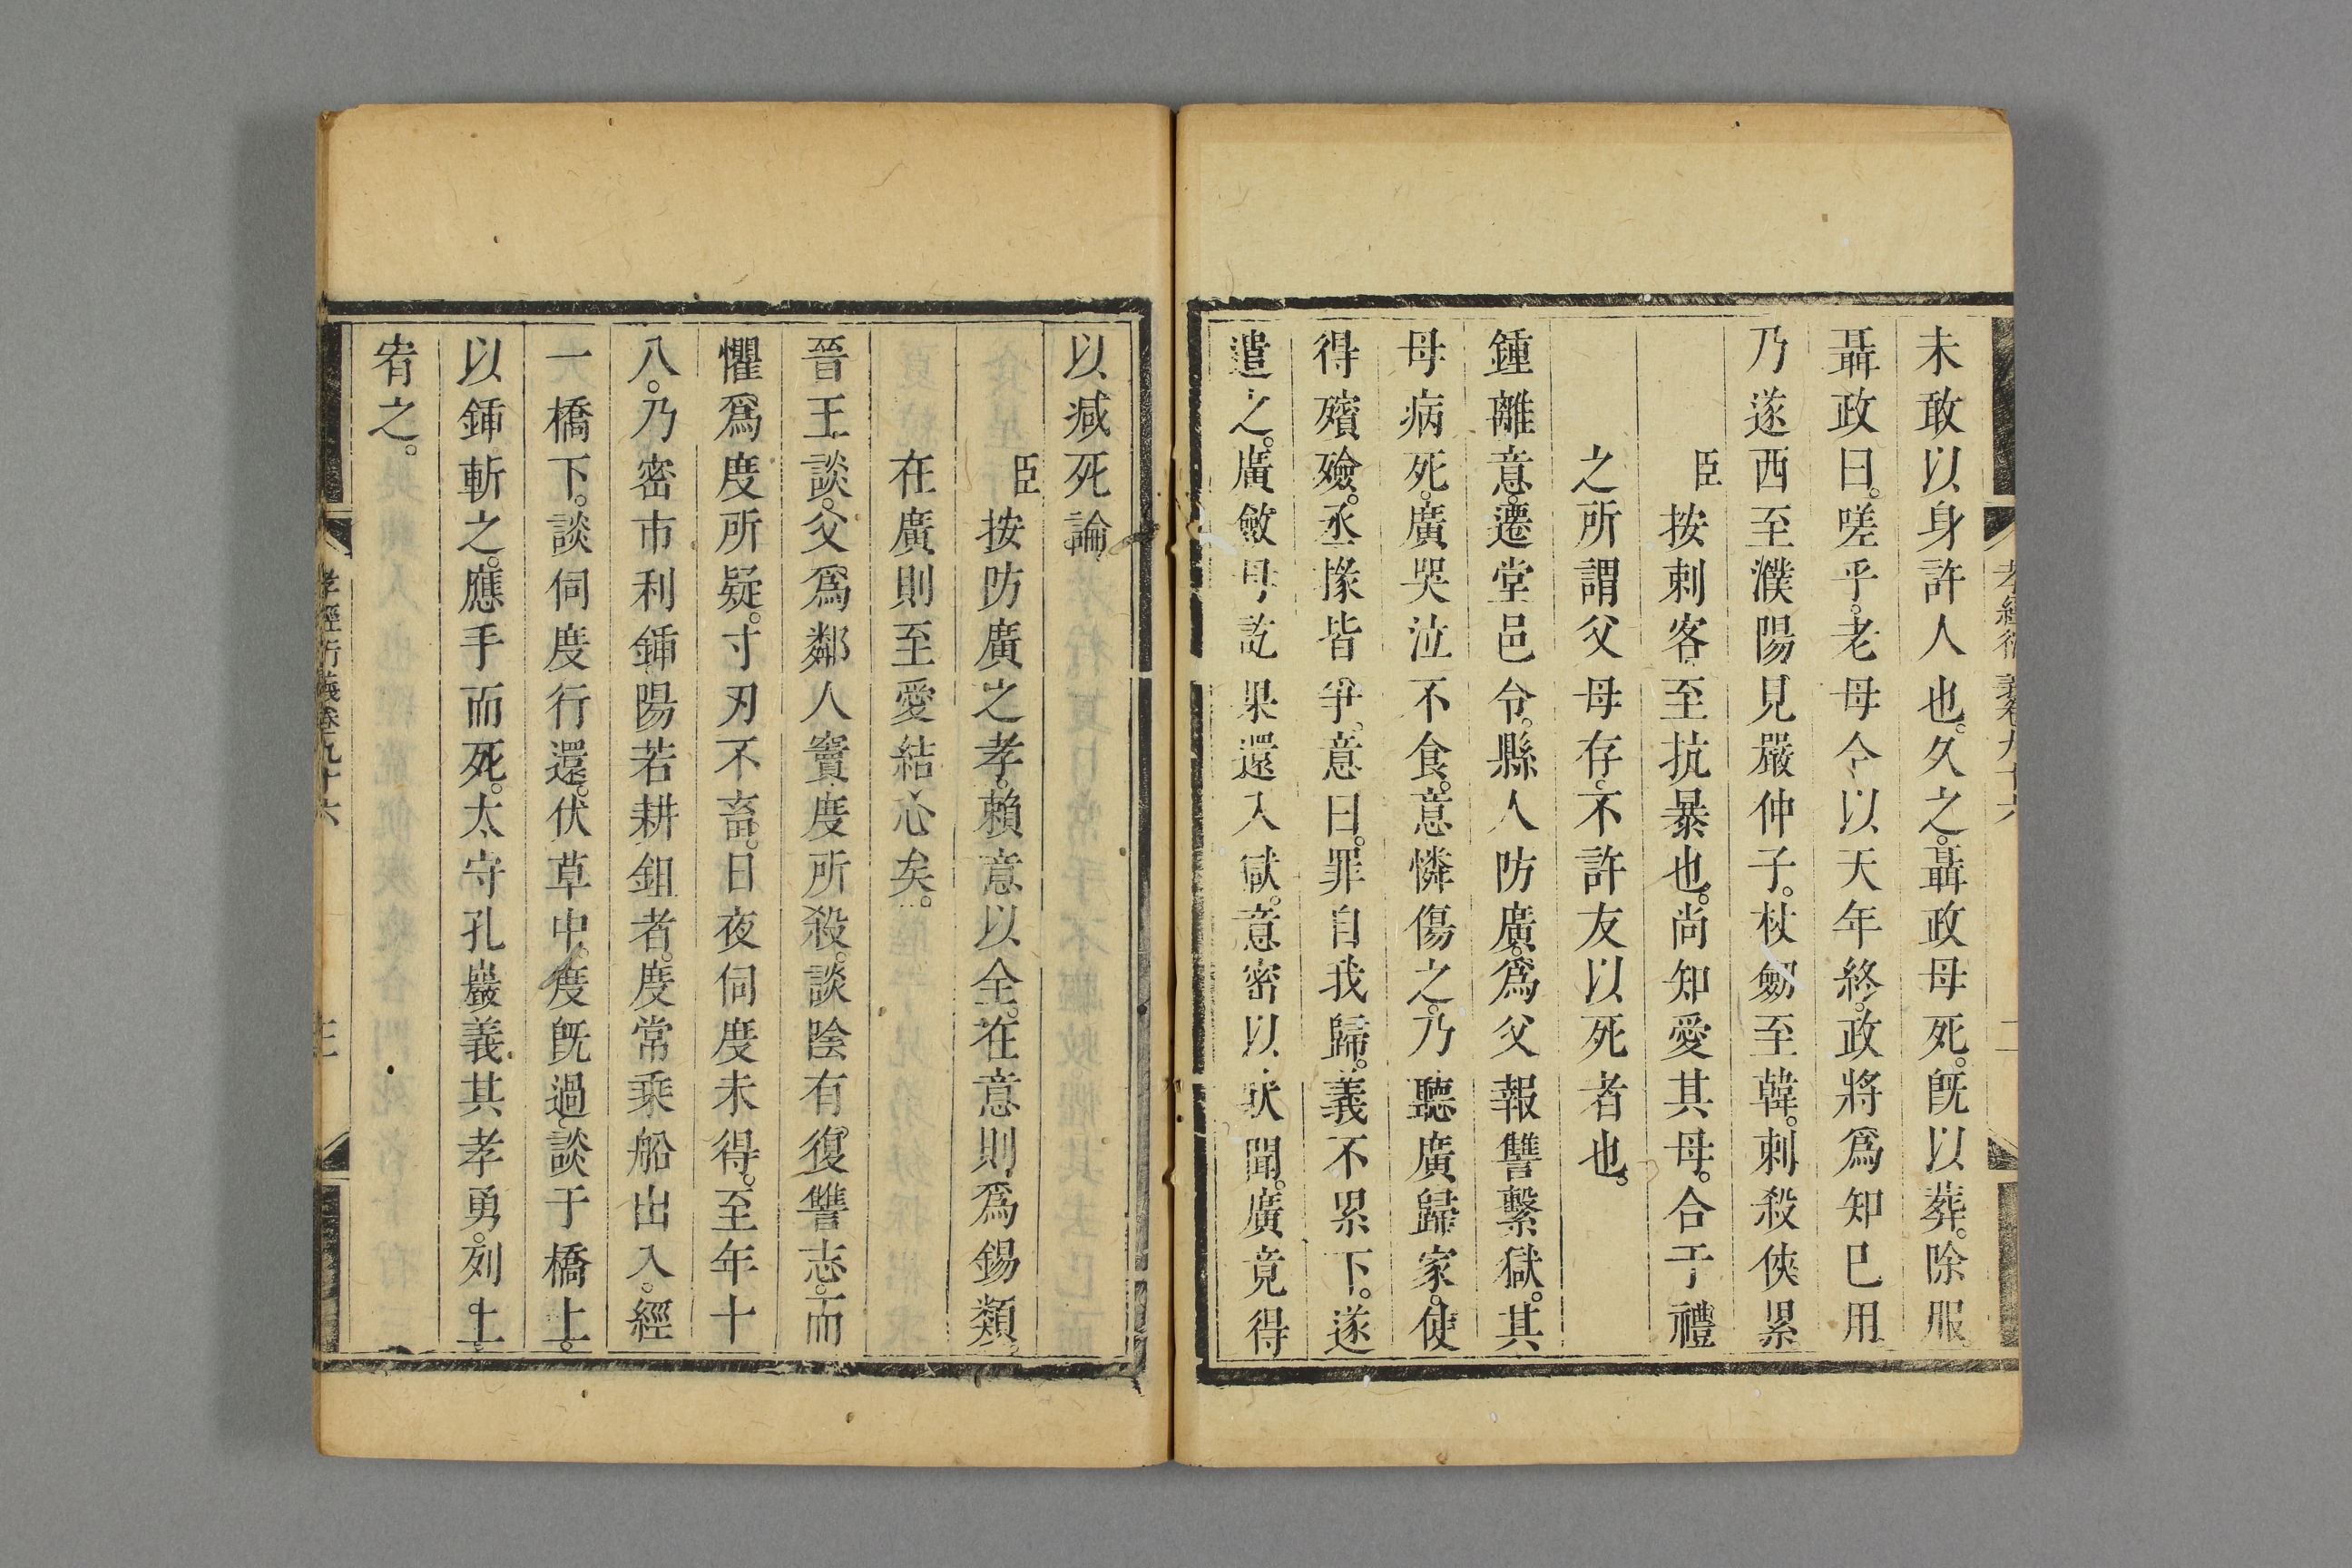 未敢以身許人也。久之。聶政母死。旣以葬。除服
聶政曰。嗟乎。老母今以天年終。政將爲知已用
乃遂西至濮陽見嚴仲子。杖劒至韓。刺殺俠累
臣按刺客至抗暴也。尚知愛其母。合于禮
之所謂父母存。不許友以死者也。
鍾離意。遷堂邑令。縣人防廣。爲父報讐繫獄。其
母病死。廣哭泣不食。意憐傷之。乃聽廣歸家。使
得殯殮。丞掾皆爭。意曰。罪自我歸。義不累下。遂
遣之。廣斂母訖果還入獄。意密以狀聞。廣竟得
以减死論。
臣按防廣之孝。賴意以全。在意則爲錫類。
在廣則至愛結心矣。
晉王談。父爲鄰人竇度所殺。談陰有復讐志。而
懼爲度所疑。寸刃不畜。日夜伺度未得。至年十
八。乃密市利鍤陽若耕鉏者。度常乘船出入。經
一橋下。談伺度行還。伏草中。度旣過。談于橋上。
以鍤斬之。應手而死。太守孔巖義其孝勇。列上。
宥之。
孝經衍義卷九十六